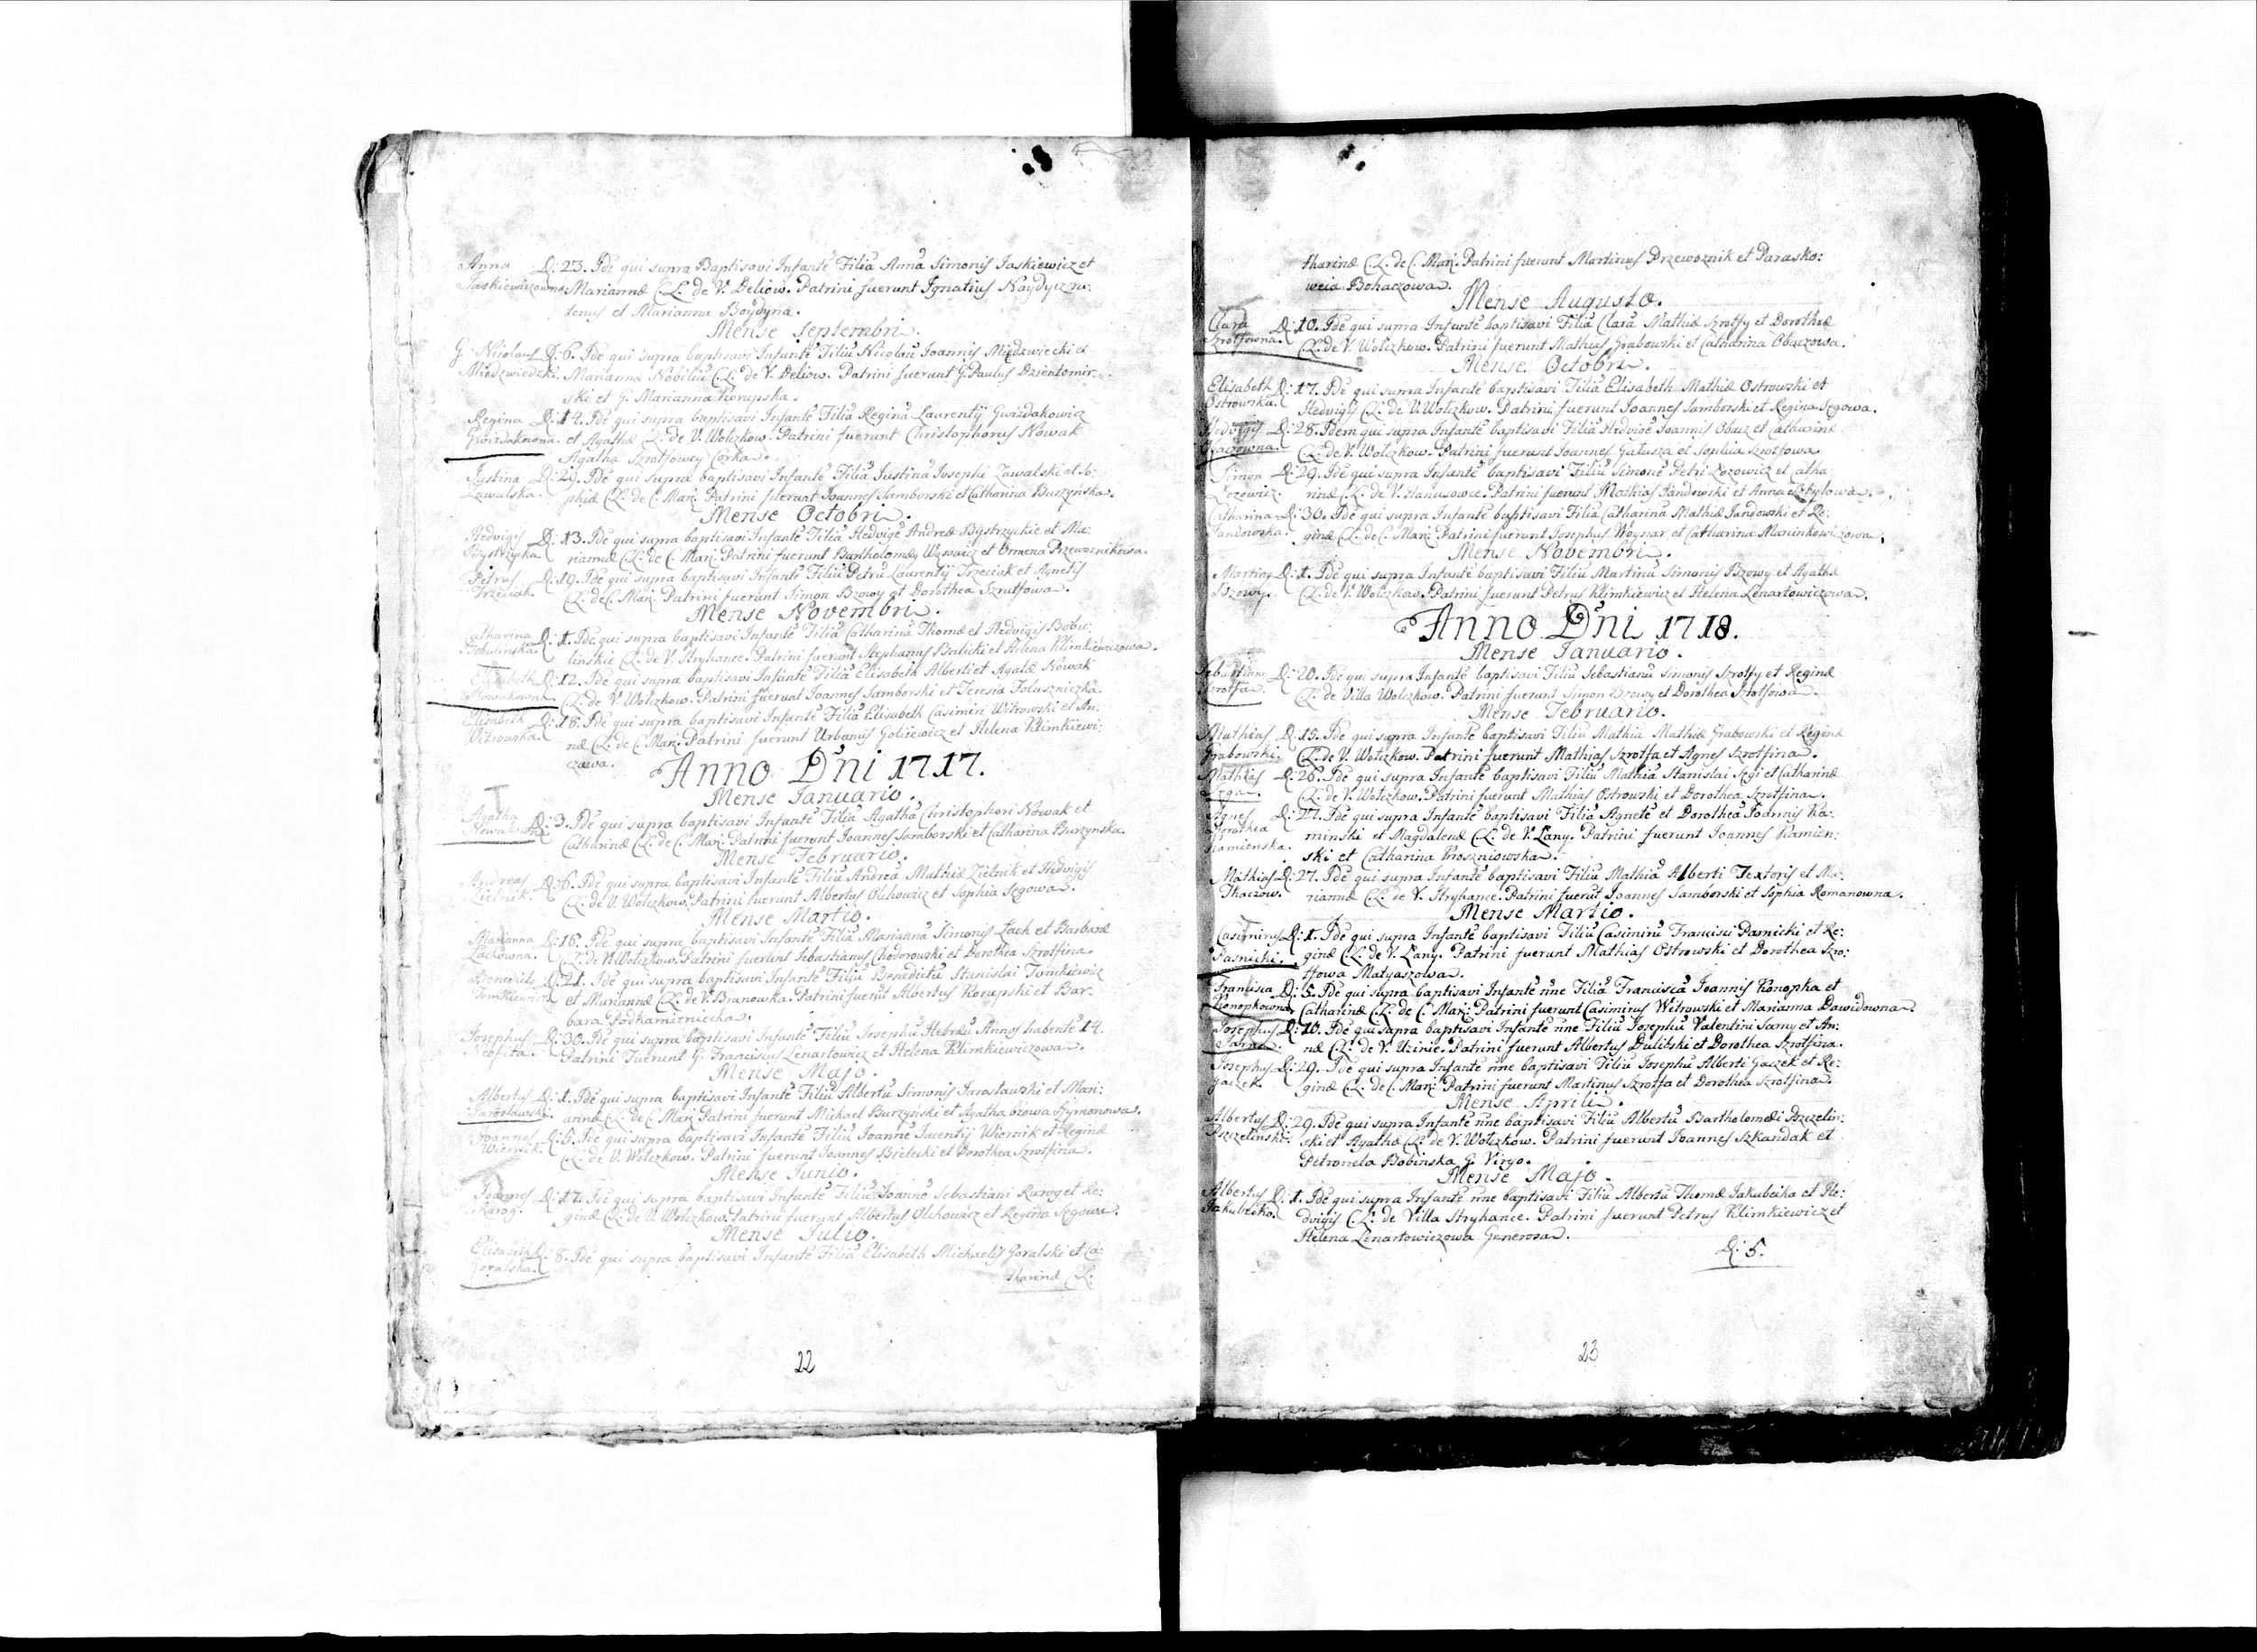 Anna D: 23. Idē qui supra Baptisavi Infantē Filiā Annā Simonis Jaskiewicz et
Jaskiewiczowna. Mariannæ C.L. de V. Deliow. Patrini fuerunt Ignatius Naydycz ru:
tenus et Marianna Boydyna.
Mense Septembri.
G. Nicolaus D: 6. Idē qui supra baptisavi Infantē Filiū Nicolaū Joannis Miedzwiecki et
Miedzwiedzki. Marianna Nobiliū C.L. de V. Deliow. Patrini fuerunt G. Paulus Dzientomir:
ski et G. Marianna Korupska.
Regina D: 14. Idē qui supra baptisavi Infantē Filiā Reginā Laurentij Gwizdakowicz
et Agathæ C.L. de V. Wolczkow. Patrini fuerunt Christophorus Nowak
Agatha Szrotfowey Corka.
Justina D: 29. Idē qui supra baptisavi Infantē Filiā Justinā Josephi Zawalski et So:
Zawalska. phiæ C.L. de C. Marj. Patrini fuerunt Joannes Samborski et Catharina Burzynska.
Mense Octobri.
Hedvigis D: 13. Idē qui supra baptisavi Infantē Filiā Hedvigē Andreæ Bystrzyckie et Ma:
Bystrzycka. riannæ C.L. de C. Marj. Patrini fuerunt Bartholomæus Wąsowicz et Ormena Przewoznikowa.
Petrus D: 19. Idē qui supra baptisavi Infantē Filiū Petrū Laurentij Trzeciak et Agnetis
Trzeciak. C.L. de C. Marj. Patrini fuerunt Simon Bzowy et Dorothea Szrutfowa.
Mense Novembri.
Catharina D: 1. Idē qui supra baptisavi Infantē Filiā Catharinā Thomæ et Hedvigis Bobu:
Bobulinska linskie C.L. de V. Stryhance. Patrini fuerunt Stephanus Balicki et Helena Klimkiewiczowa.
Elisabeth D: 12. Idē qui supra baptisavi Infantē Filiā Elisabeth Alberti et Agatæ Nowak
Nowakowna C.L. de V. Wolczkow. Patrini fuerunt Joannes Samborski et Teresia Toluszniczka.
Elisabeth D: 18. Idē qui supra baptisavi Infantē Filiā Elisabeth Casimiri Witrowski et An:
Witrowska. næ C.L. de C. Marj. Patrini fuerunt Urbanus Goliciewicz et Helena Klimkiewi:
czowa.
Anno Dni 1717.
Mense Januario.
Agatha D: 3. Idē qui supra baptisavi Infantē Filiā Agathā Christophori Nowak et
Nowakowna Catharinæ C.L. de C. Marj. Patrini fuerunt Joannes Samborski et Catharina Burzynska.
Mense Februario.
Andreas D: 6. Idē qui supra baptisavi Infantē Filiū Andreā Mathiæ Zielnik et Hedvigis
Zielnik. C.L. de V. Wolczkow. Patrini fuerunt Albertus Olchowicz et Sophia Szgowa.
Mense Martio.
Marianna D: 16. Idē qui supra baptisavi Infantē Filiā Mariannā Simonis Lach et Barbaræ
Lachowna. C.L. de V. Wolczkow. Patrini fuerunt Sebastianus Chodorowski et Dorothea Szrotfina.
Benedictus D: 21. Idē qui supra baptisavi Infantē Filiū Benedictū Stanislai Tomkiewicz
Tomkiewicz et Mariannæ C.L. de V. Branowka. Patrini fuerūt Albertus Korupski et Bar:
bara Podkamieniecka.
Josephus D: 30. Idē qui supra baptisavi Infantē Filiū Josephū Hebreū Annos habentē 14.
Neofita. Patrini Fuerunt G. Franciscus Lenartowicz et Helena Klimkiewiczowa.
Mense Majo.
Albertus D: 1. Idē qui supra baptisavi Infantē Filiū Albertū Simonis Jaroslawski et Mari:
Jaroslawski. annæ C.L. de C. Marj. Patrini fuerunt Michael Burzynski et Agatha bzowa Szymonowa.
Joannes D: 5. Idē qui supra baptisavi Infantē Filiū Joannē Iwentij Wiernik et Reginæ
Wiernik. C.L. de V. Wolczkow. Patrini fuerunt Joannes Bielecki et Dorothea Szrotfina.
Mense Junio.
Joannes D: 17. Idē qui supra baptisavi Infantē Filiū Joannē Sebastiani Rarog et Re:
Rarog. ginæ C.L. de V. Wolczkow. Patrini fuerunt Albertus Olchowicz et Regina Szgowa.
Mense Julio.
Elisabeth D: 8. Idē qui supra baptisavi Infantē Filiā Elisabeth Michaelis Goralski et Ca:
Goralska. tharinæ C.L.
22
tharinæ C.L. de C. Marj. Patrini fuerunt Martinus Przewoznik et Parasko:
weia Bohaczowa.
Mense Augusto.
Clara D: 10. Idē qui supra Infantē baptisavi Filiā Clarā Mathiæ Szrotfy et Dorotheæ
Szrotfowna. C.L. de V. Wolczkow. Patrini fuerunt Mathias Grabowski et Catharina Obaczowa.
Mense Octobri.
Elisabeth D: 17. Idē qui supra Infantē baptisavi Filiā Elisabeth Mathiæ Ostrowski et
Ostrowska. Hedvigis C.L. de V. Wolczkow. Patrini fuerunt Joannes Samborski et Regina Szgowa.
Hedvigis D: 28. Idem qui supra Infantē baptisavi Filiā Hedvigē Joannis Obacz et Catharinæ
C.L. de V. Wolczkow. Patrini fuerunt Joannes Galusza et Sophia Szrotfowa.
Simon D: 29. Idē qui supra Infantē baptisavi Filiū Simonē Petri Lozowicz et Catha:
Lozowicz. rinæ C.L. de V. Hanusowce. Patrini fuerunt Mathias Jandowski et Anna
Catharina D: 30. Idē qui supra Infantē baptisavi Filiā Catharinā Mathiæ Jandowski et Re:
Jandowska. ginæ C.L. de C. Marj. Patrini fuerunt Josephus Woynar et Catharina Marinkowiczowa.
Mense Novembri.
Martinus D: 1. Idē qui supra Infantē baptisavi Filiū Martinū Simonis Bzowy et Agathæ
Bzowy. C.L. de V. Wolczkow. Patrini fuerunt Petrus Klimkiewicz et Helena Lenartowiczowa.
Anno Dni 1718.
Mense Januario.
Sebastianus D: 20. Idē qui supra Infantē baptisavi Filiū Sebastianū Simonis Szrotfy et Reginæ
Szrotfa. C.L. de Villa Wolczkow. Patrini fuerunt Simon Bzowy et Dorothea Szrotfowa.
Mense Februario.
Mathias D: 15. Idē qui supra Infantē baptisavi Filiū Mathiā Mathiæ Grabowski et Reginæ
Grabowski. C.L. de V. Wolczkow. Patrini fuerunt Mathias Szrotfa et Agnes Szrotfina.
Mathias D: 26. Idē qui supra Infantē baptisavi Filiū Mathiā Stanislai Szgi et Catharinæ
Szga. C.L. de V. Wolczkow. Patrini fuerunt Mathias Ostrowski et Dorothea Szrotfina.
Agnes D: 27. Idē qui supra Infantē baptisavi Filiā Agnetē et Dorotheā Joannis Ka:
Dorothea minski et Magdalenæ C.L. de V. Lany. Patrini fuerunt Joannes Kamien:
Kamienska. ski et Catharina Proszniowska.
Mathias D: 27. Idē qui supra Infantē baptisavi Filiū Mathiā Alberti Textoris et Ma:
Tkaczow. riannæ C.L. de V. Stryhance. Patrini fuerūt Joannes Samborski et Sophia Romanowna.
Mense Martio.
Casimirus D: 1. Idē qui supra Infantē baptisavi Filiū Casimirū Francisci Pasnicki et Re:
Pasnicki. ginæ C.L. de V. Lany. Patrini fuerunt Mathias Ostrowski et Dorothea Szro:
tfowa Matyaszowa.
Francisca D: 5. Idē qui supra baptisavi Infantē nne Filiā Franciscā Joannis Konopka et
Konopkowna Catharinæ C.L. de C. Marj. Patrini fuerunt Casimirus Witrowski et Marianna Dawidowna.
Josephus D: 10. Idē qui supra baptisavi Infantē nne Filiū Josephū Valentini Sarny et An:
Sarna. næ C.L. de V. Uzinie. Patrini fuerunt Albertus Dulitski et Dorothea Szrotfina.
Josephus D: 29. Idē qui supra Infantē nne baptisavi Filiū Josephū Alberti Gaczek et Re:
Gaczek. ginæ C.L. de C. Marj. Patrini fuerunt Martinus Szrotfa et Dorothea Szrotfina.
Mense Aprili.
Albertus D: 29. Idē qui supra Infantē nne baptisavi Filiū Albertū Bartholomæi Pszczelin:
Pszczelinski. ski et Agathæ C.L. de V. Wolczkow. Patrini fuerunt Joannes Szkandak et
Petronela Bobinska G. Virgo.
Mense Majo.
Albertus D: 1. Idē qui supra Infantē nne baptisavi Filiū Albertū Thomæ Jakubcika et He:
Jakubcik. dvigis C.L. de Villa Stryhance. Patrini fuerunt Petrus Klimkiewicz et
Helena Lenartowiczowa Generosa.
D: 5.
23